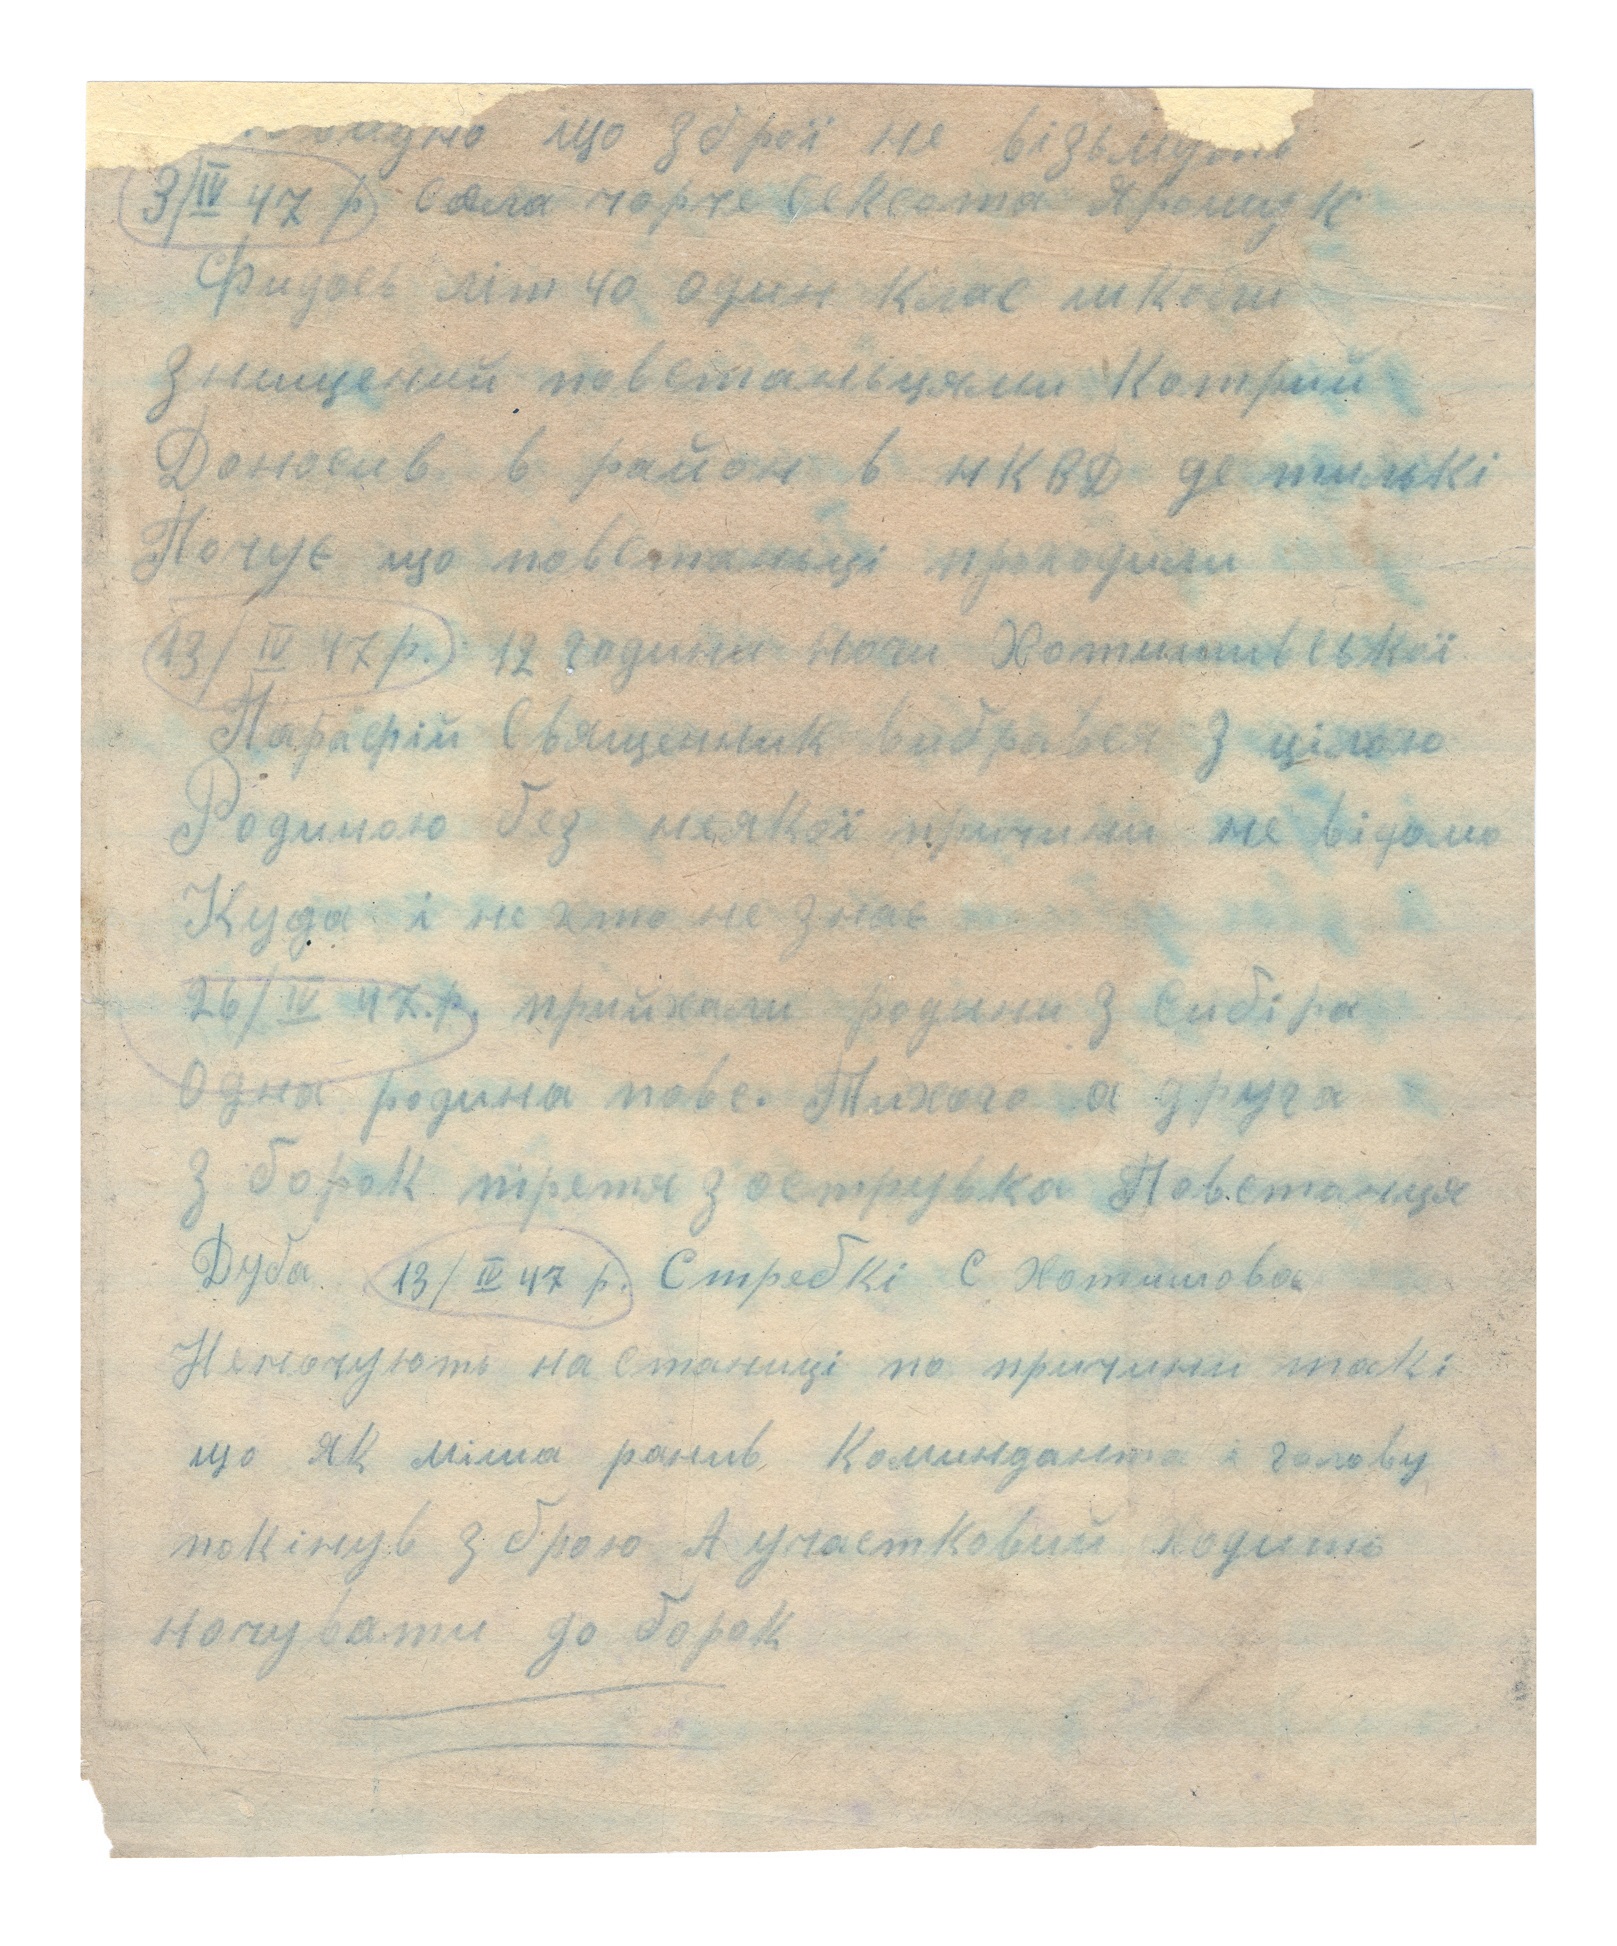 що зброї не візьмуть
3/IV 47 р. Села чорче Сексота Ярощук
Фидось літ 40 один клас школи
Знищений повстаньцями Котрий
Доносив в район в НКВД де тилькі
Почує що повстаньці проходили
13/IV 47 р. 12 години ночи Хотишивської
Парафій Священник вибрався з цілою
Родиною без неякої причини не відомо
Куда і не хто не знає
26/IV 47.р. прийхали родини з Сибіра
Одна родина повс. Тихого а друга
з борок третя з острувка Повстанця
Дуба 13/IV 47 р. Стребкі С Хотишова
Неночують на станиці по причини такі
що як міша ранив Коминданта і голову
покінув зброю А участковий ходить
ночувати до борок